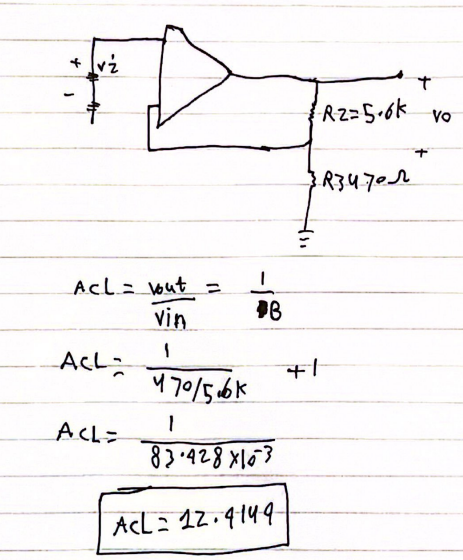 + vi
-
+
R2=5.6K vo
+
R3470Ω
ACL = vout/vin = 1/B
ACL = 1/470/5.6K +1
ACL = 1/83.428X10-3
ACL = 12.4144